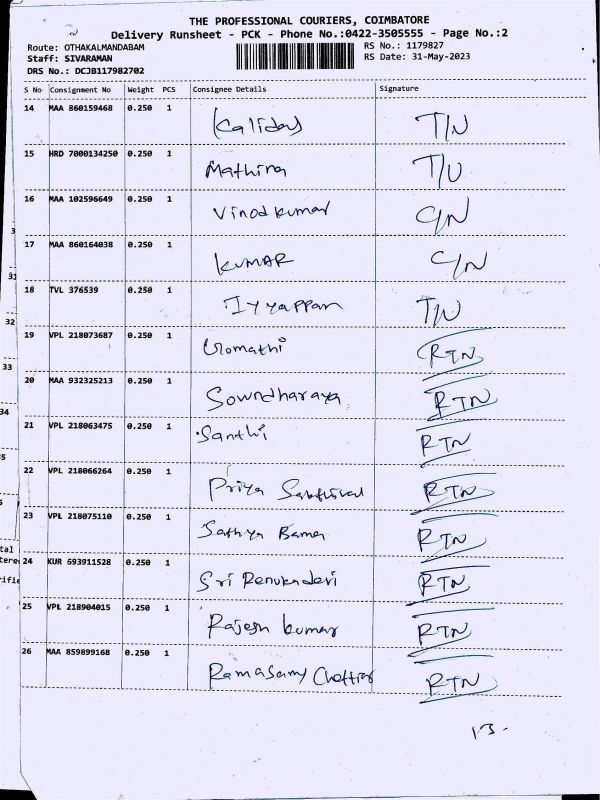 THE PROFESSIONAL COURIERS, COIMBATORE
Delivery Runsheet - PCK - Phone No.:0422-3505555 - Page No.:2
Route: OTHAKALMANDABAM RS No.: 1179827
Staff: SIVARAMAN RS Date: 31-May-2023
DRS No.: DCJB117982702
S No Consignment No Weight PCS Consignee Details Signature
14 MAA 860159468 0.250 1 Kalidas T/N
15 HRD 7000134250 0.250 1 Mathina T/U
16 MAA 102596649 0.250 1 Vinod kumar C/N
17 MAA 860164038 0.250 1 KUMAR C/N
31
18 TVL 376539 0.250 1 Iyyappan T/N
32
19 VPL 218073687 0.250 1 Gomathi RTN
33
20 MAA 932325213 0.250 1 Sowndharaya RTN
34
21 VPL 218063475 0.250 1 Santhi RTN
22 VPL 218066264 0.250 1 Priya RTN
23 VPL 218075110 0.250 1 Sathya Bama RTN
24 KUR 693911528 0.250 1 Sri Renukadevi RTN
25 VPL 218904015 0.250 1 Rajesh kumar RTN
26 MAA 859899168 0.250 1 Ramasamy Chettiar RTN
13-